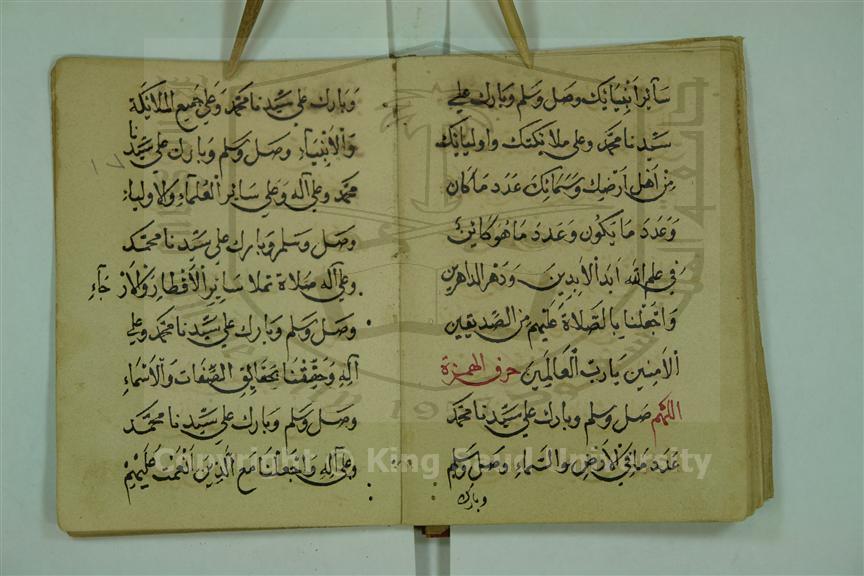 سآئر أنبيائك وصل وسلم وبارك علي
سيدنا محمد وعلى ملائكتك واوليائك
من اهل ارضك وسمائك عدد ما كان
وعدد ما يكون وعدد ما هو كائن
في علم الله ابد الابدين ودهر الداهرين
واجعلنا بالصلاة عليهم من الصديقين
الامنين يارب العالمين حرف الهمزة
اللهم صل وسلم وبارك علي سيدنا محمد
عدد ما في الارض والسماء وصل وسلم
وبارك
وبارك علي سيدنا محمد وعلي جميع الملائكة
والانبياء وصل وسلم وبارك علي سيدنا
محمد وعلي آله وعلي سائر العلماء والاولياء
وصل وسلم وبارك علي سيدنا محمد
وعلي آله صلاة تملا سائر الاقطار والارجاء
وصل وسلم وبارك علي سيدنا محمد وعلي
آله وحققنا بحقائق الصفات والاسماء
وصل وسلم وبارك علي سيدنا محمد
وعلي آله واجعلنا مع الذين انعمت عليهم
Copyright © King Saud University